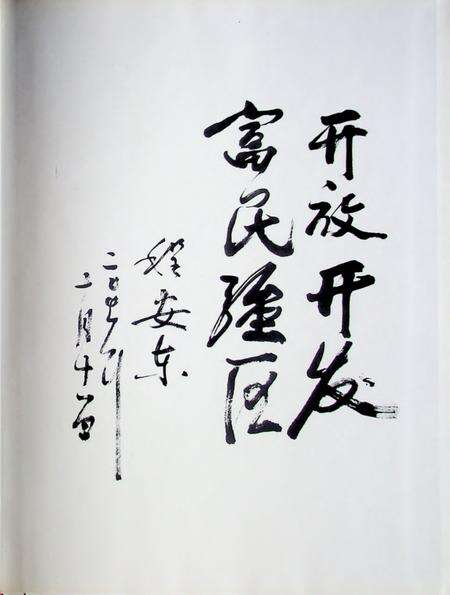 开放开发
富民强区
程安东
二〇〇七年
二月十